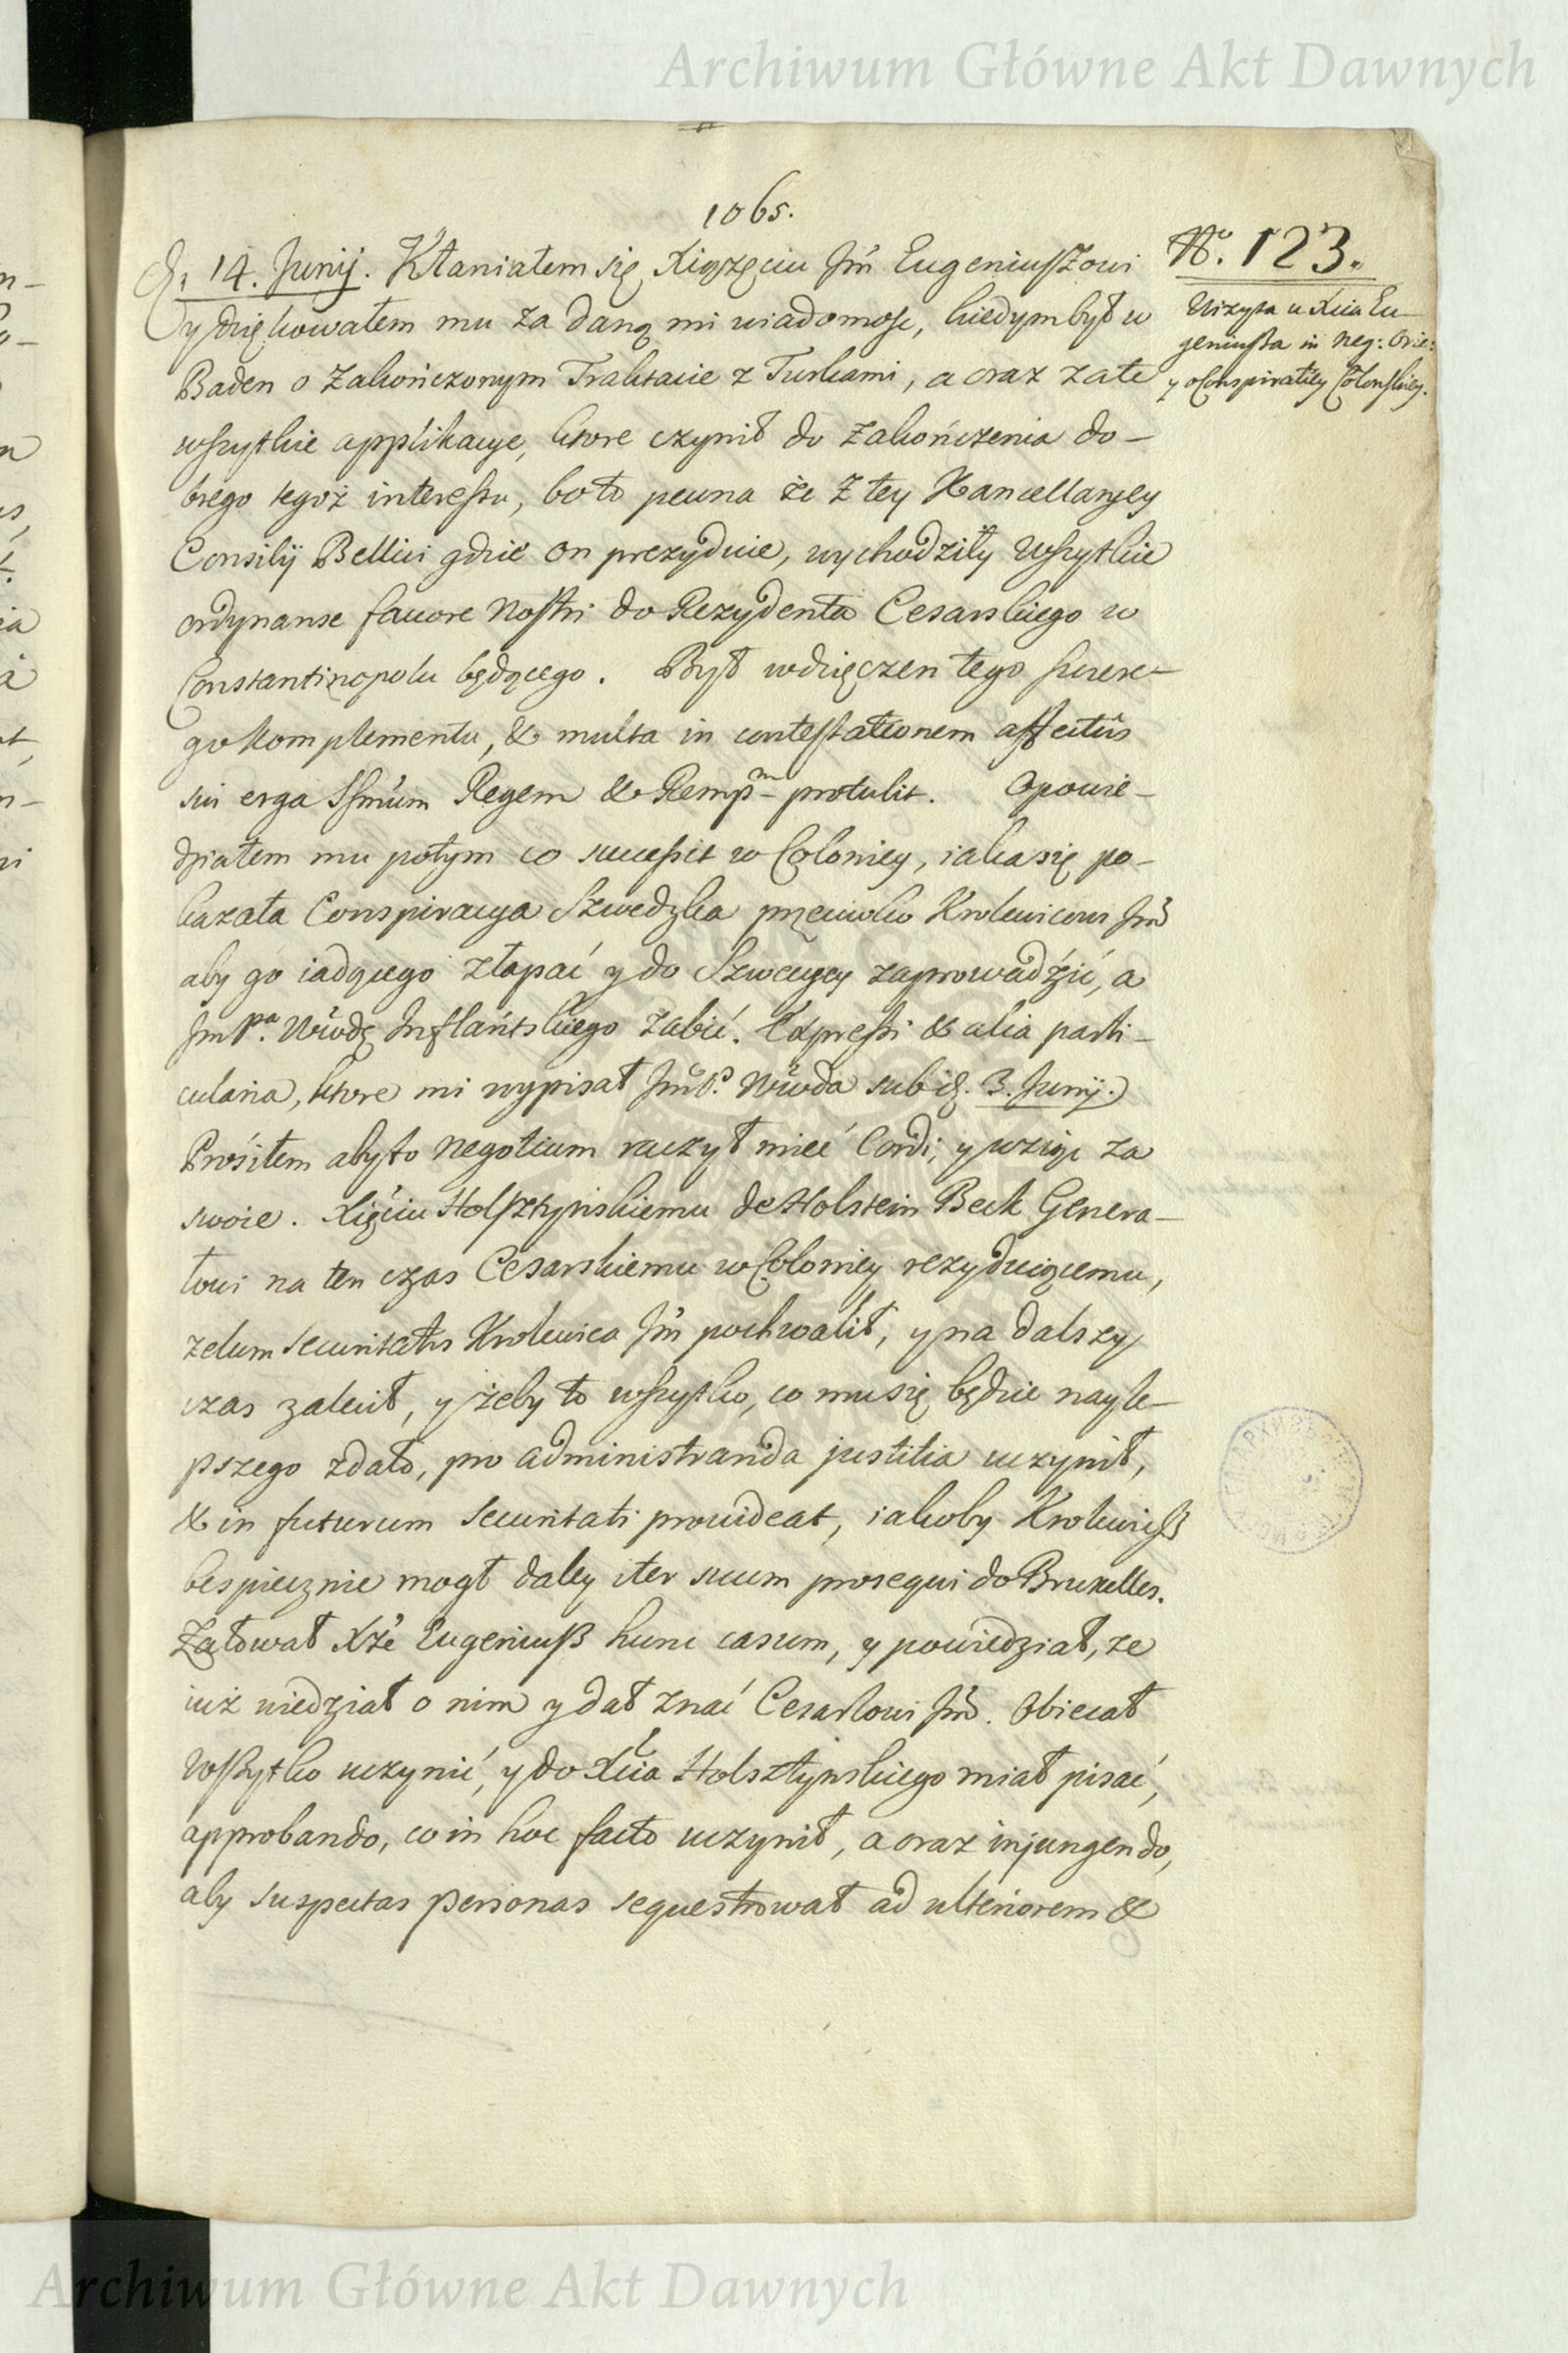 Archiwum Główne Akt Dawnych
1065.
D. 14. Junij. Kłaniałem się Xiążęciu Jm̃ Eugeniuszowi
y dziękowałem mu za daną mi wiadomość, kiedym był w
Baden o zakończonym Traktacie z Turkami, a oraz za te
wszytkie applikacye, ktore czynił do zakończenia do-
brego tegoż interessu, bo to pewna że z tey Kancellaryey
Consilij Bellici gdzie on prezyduie, wychodziły wszytkie
ordynanse favore nostri do Rezydenta Cesarskiego w
Constantinopolu będącego. Był wdzięczen tego szczere-
go komplementu, & multa in contestationem affectûs
sui erga Ssmũm Regem & Remp̃m protulit. Opowie-
działem mu potym co successit w Coloniey, iaka się po-
kazała Conspiracya Szwedzka przeciwko Krolewicowi Jm̃
aby go iadącego złapać y do Szwecyey zaprowadźić, a
Jm Pa. Wwodę Inflańtskiego zabić. Expressi & alia parti-
cularia, ktore mi wypisał Jm̃ P. Wwoda sub d. 3. Junij.
Prośiłem aby to negotium raczył mieć Cordi, y wziąć za
swoie. Xięciu Holsztyńskiemu de Holstein Beck Genera-
łowi na ten czas Cesarskiemu w Coloniey rezyduiącemu,
zelum securitatis Krolewica Jm̃ pochwalił, y na dalszy
czas zalecił, y żeby to wszytko, co mu się będzie nayle-
pszego zdało, pro administranda justitia uczynił,
& in futurum securitati provideat, iakoby Krolewicß
bespiecznie mogł daley iter suum prosequi do Bruxelles.
Załował Xże Eugeniuß hunc casum, y powiedział, ze
iuż wiedział o nim y dał znać Cesarzowi Jm̃. Obiecał
wßytko uczynić, y do Xcia Holsztynskiego miał pisać,
approbando, co in hoc facto uczynił, a oraz injungendo,
aby suspectas personas sequestrował ad ulteriorem &
No. 123.
Wizyta u Xcia Eu-
geniußa in neg: Orie:
y o Conspiratiey Colonskiey.
Archiwum Główne Akt Dawnych